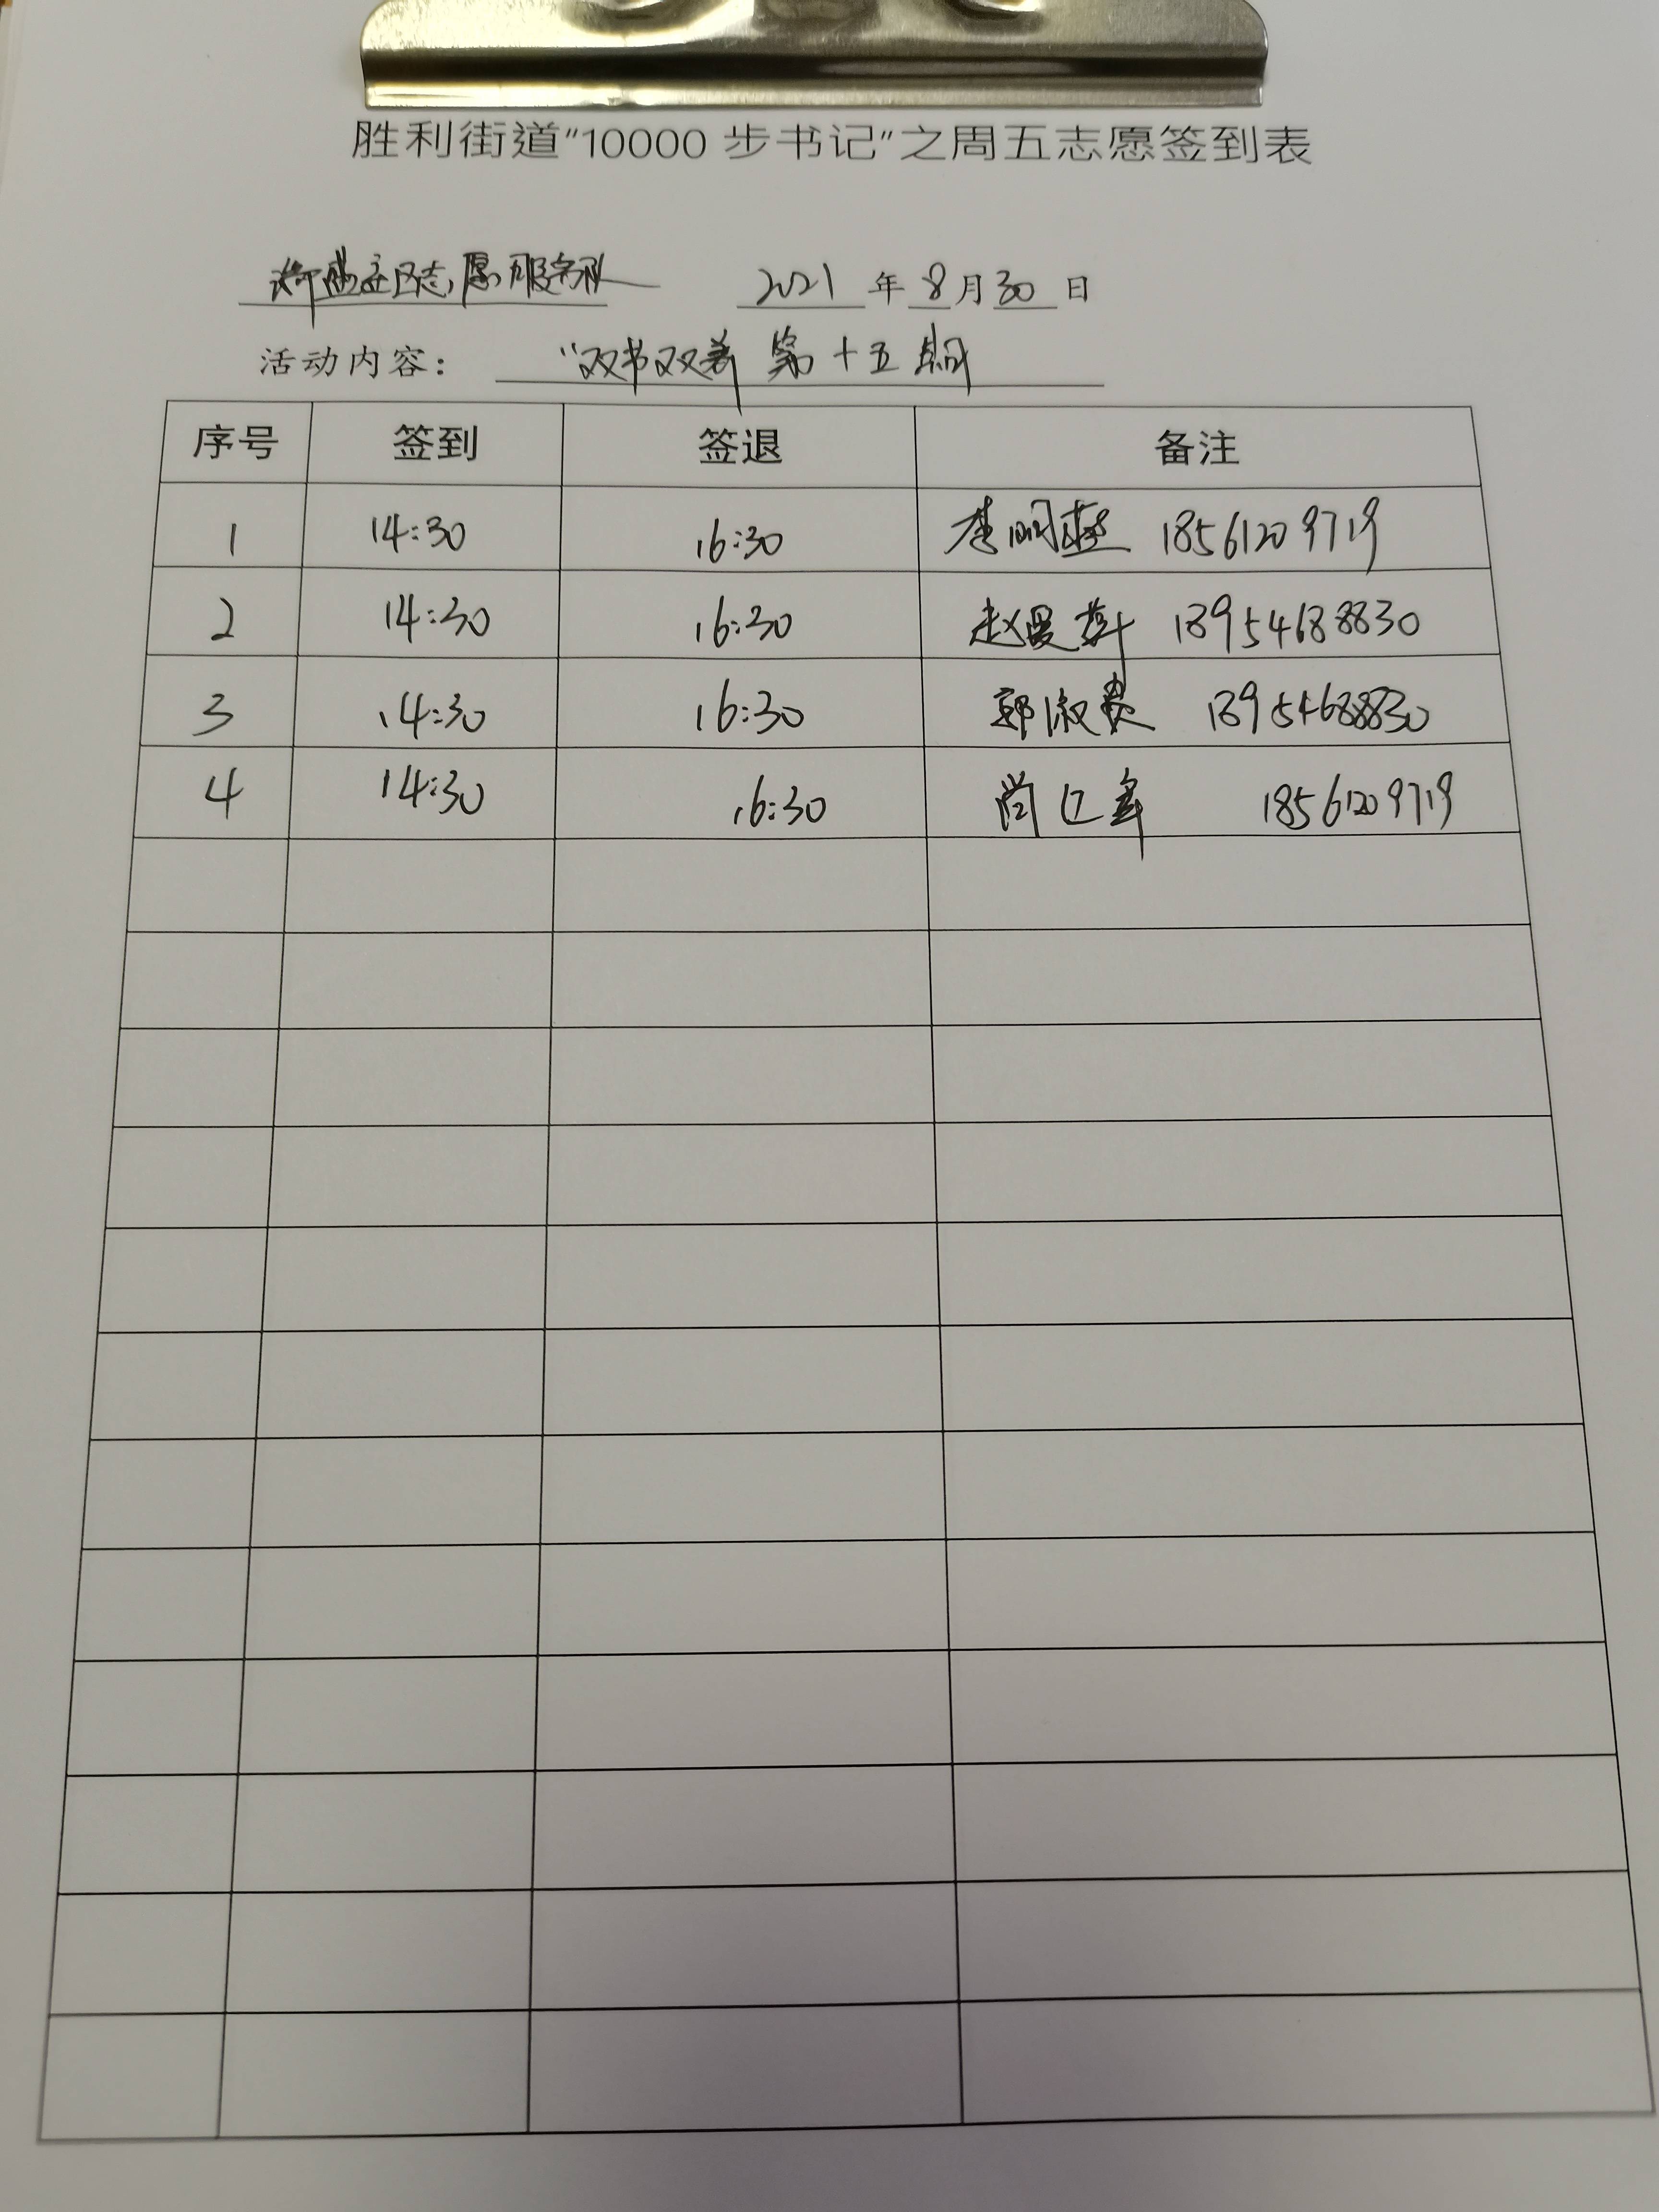 胜利街道“10000 步书记”之周五志愿签到表
社区志愿服务队 2021 年 8 月 30 日
活动内容： “双书双 第十五期
序号 签到 签退 备注
1 14:30 16:30 李 18561209719
2 14:30 16:30 赵曼 13954688830
3 14:30 16:30 郭淑 13954688830
4 14:30 16:30 尚 18561209719